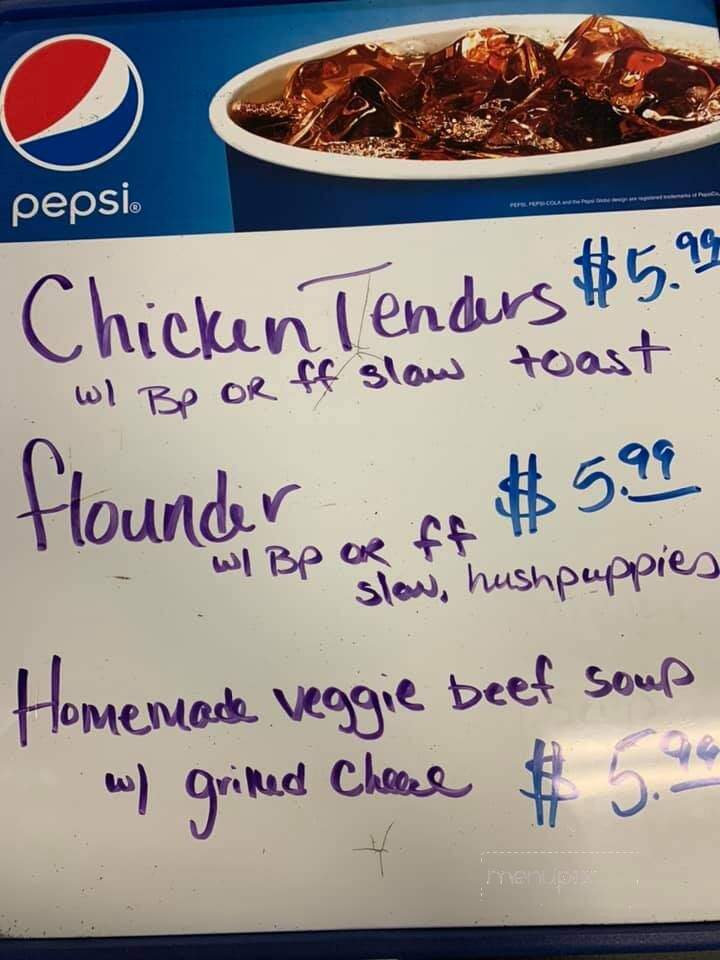 pepsi®
PEPSI, PEPSI-COLA and the Pepsi Globe design are registered trademarks of PepsiCo,
Chicken Tenders $5.99
w/ BP OR ff slaw toast
flounder $5.99
w/ BP OR ff
slaw, hushpuppies
Homemade veggie beef soup
w/ grilled Cheese $5.99
menupix